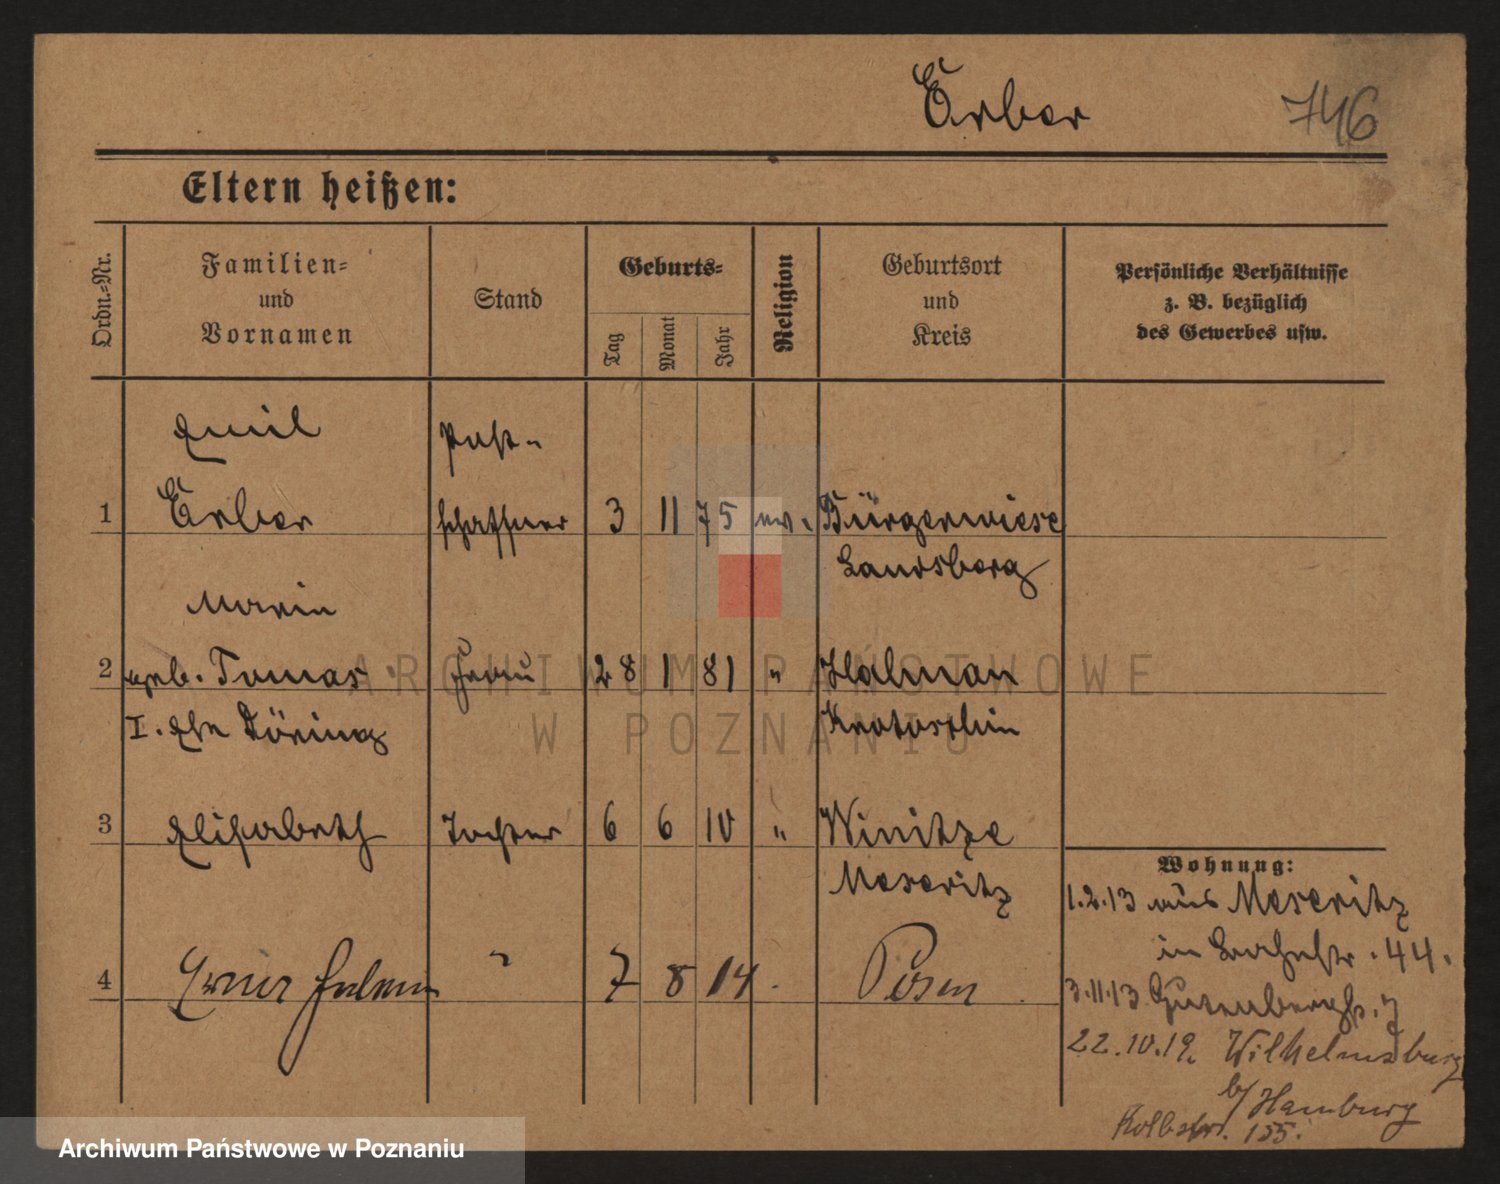 Erber 746
Eltern heißen:
Ordn.=Nr.
Familien=
und
Vornamen
Stand
Geburts=
Tag
Monat
Jahr
Religion
Geburtsort
und
Kreis
Persönliche Verhältnisse
z. B. bezüglich
des Gewerbes usw.
Emil Post-
1 Erber schaffner 3 11 75 ev. Bürgerwiese
Landsberg
Maria
2 geb. Tomas Frau 28 1 81 "
Krotoschin
I. Ehe Döring
3 Elisabeth Tochter 6 6 10 " Winitze
Meseritz
4 " 7 8 14. Posen
Wohnung:
1.2.13 aus Meseritz
in 44.
3.11.13 Gutenbergstr. 7
22.10.19. Wilhelmsburg
b/Hamburg
155.
ARCHIWUM PAŃSTWOWE
W POZNANIU
Archiwum Państwowe w Poznaniu